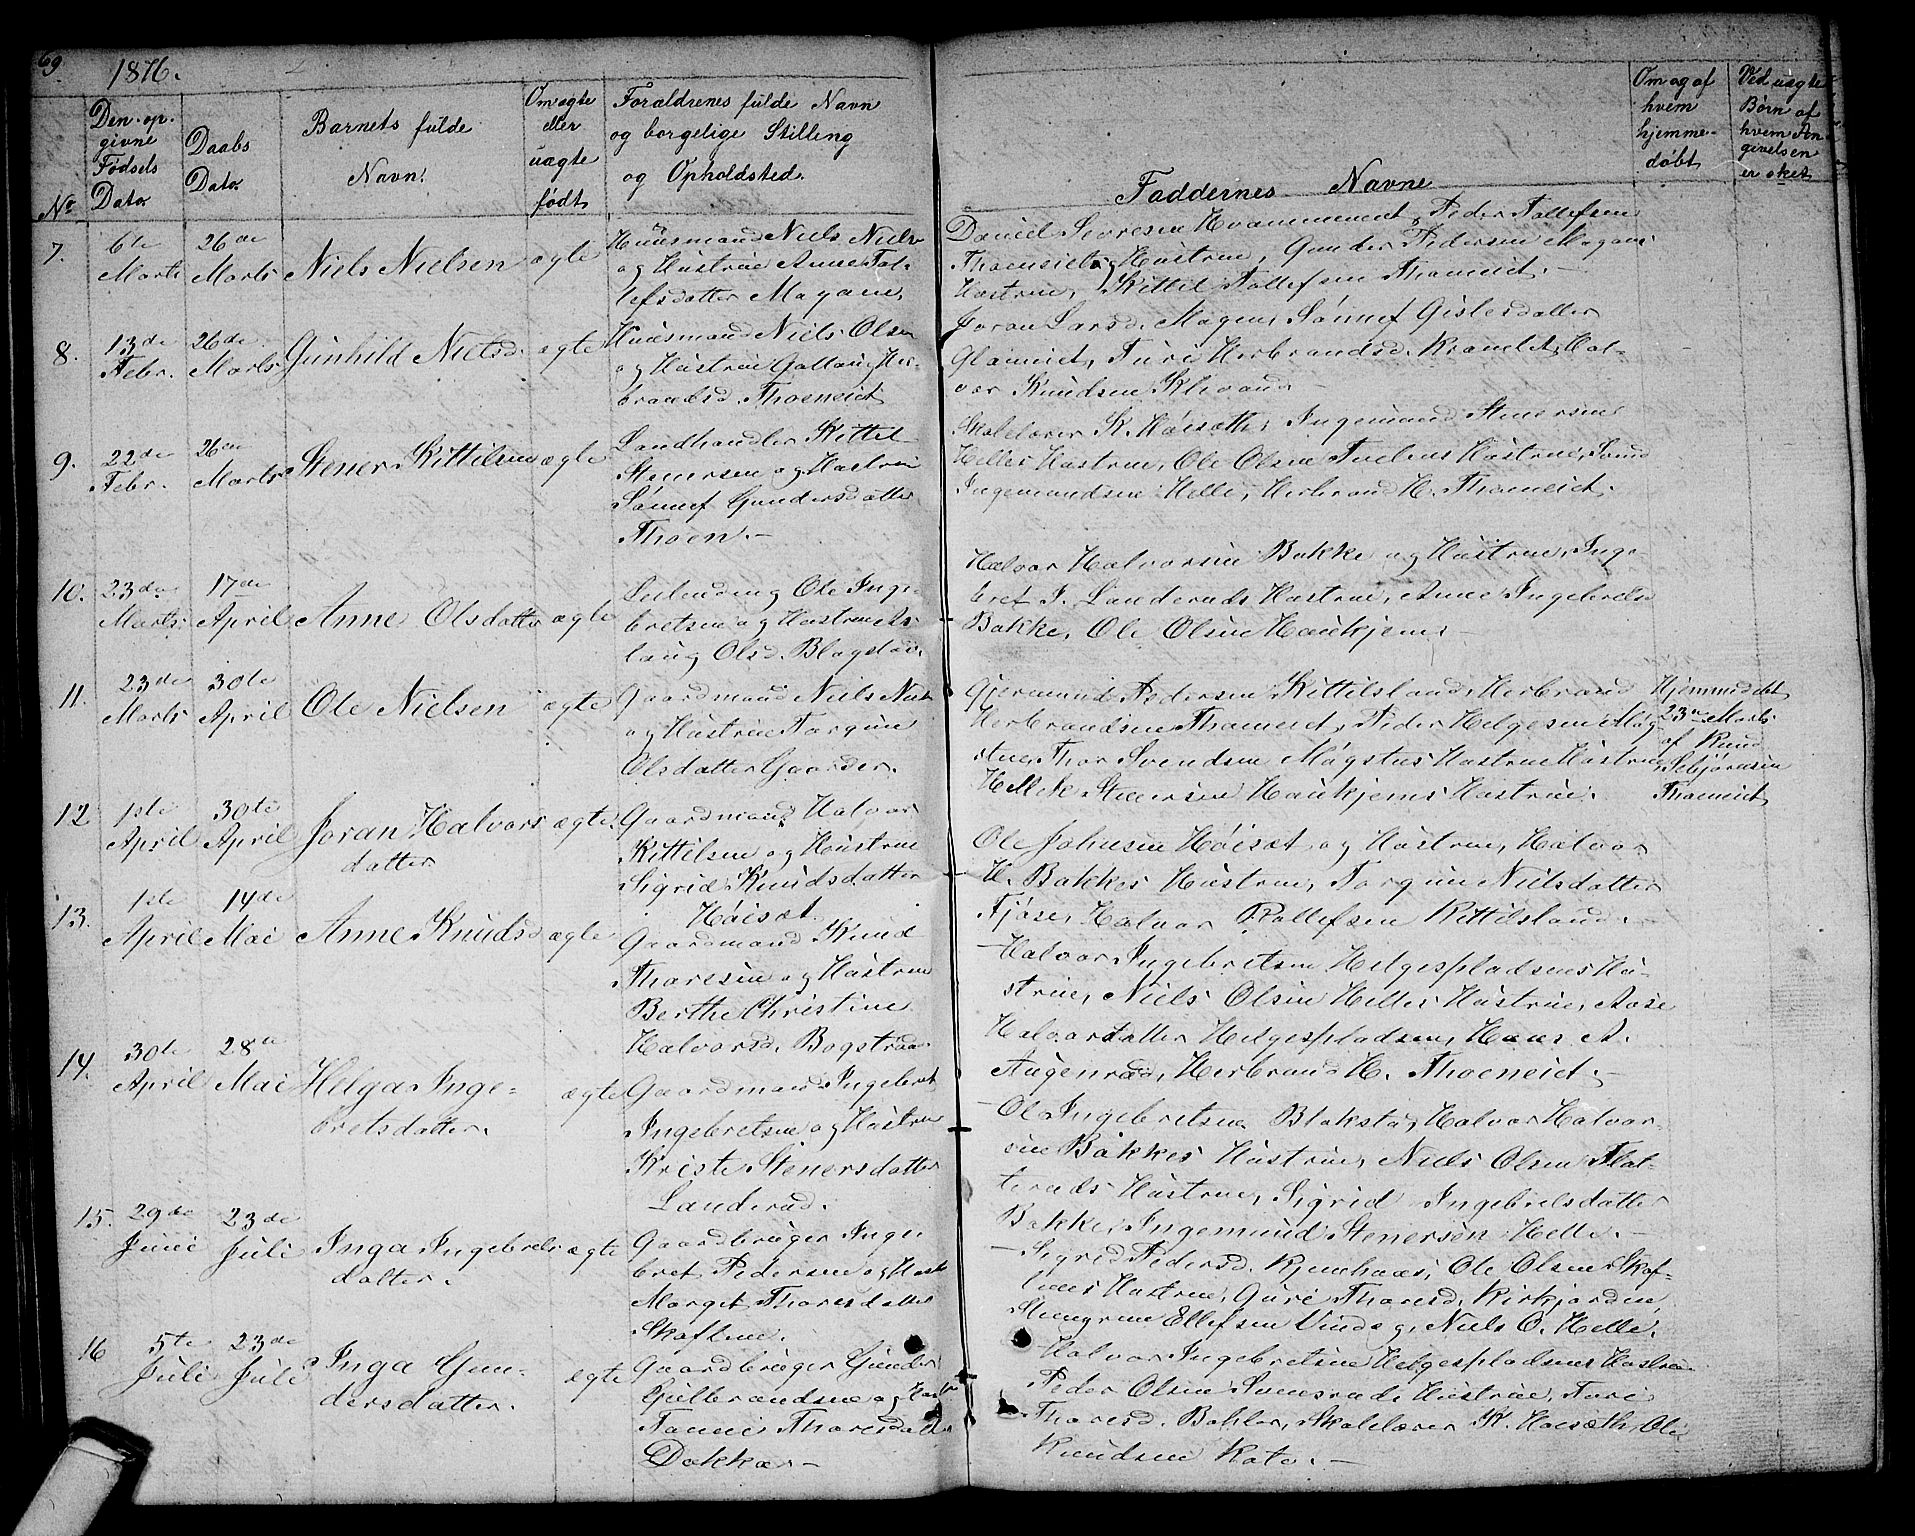 69
1876.
No
Den op-
givne
Fødsels
Dato
Daabs
Dato
Barnets fulde
Navn.
Om ægte
eller
uægte
født
Forældrenes fulde Navn
og borgelige Stilling
og Opholdsted.
Faddernes Navne
Om og af
hvem
hjemme-
døbt
Ved uægte
Børn af
hvem An-
givelsen
er sket
7.
6te
Marts
26de
Marts
Niels Nielsen
ægte
Huusmand Niels Niels
og Hustrue Anne Tol-
lefsdatter Mogane,
Daniel Hvammennet, Peder Tollefsen
Thoeneiet og Hustrue, Gunder Pedersen Mogans
Hustrue, Kittil Tollefsen Thoeneiet.-
8.
13de
Febr.
26de
Marts
Gunhild Nielsd.
ægte
Huusmand Niels Olsen
og Hustrue Gollaug Her-
brandsd. Thoeneiet
Joran Larsd. Mogen, Sønnef Gislesdatter
Turi Herbrandsd. Hal-
vor Knudsen
9.
22de
Febr.
26de
Marts
Stener Kittilsen
ægte
Landhandler Kittel
Stenersen og Hustrue
Sønnef Gundersdatter
Thoen.-
Skolelærer K. Høisæth, Ingemund Stenersen
Helles Hustrue, Ole Olsen Hustrue,
Ingemundsen Helle, Herbrand H. Thoeneiet.
10.
23de
Marts
17de
April
Anne Olsdatter
ægte
Leilending Ole Inge-
bretsen og Hustrue As-
laug Olsd. Blagstad.
Halvor Halvorsen Bakke og Hustrue, Inge-
bret I. Landeruds Hustrue, Anne Ingebretsd
Bakke, Ole Olsen Haukjem,
11.
23de
Marts
30te
April
Ole Nielsen
ægte
Gaardmand Niels Niels
og Hustrue Torgune
Olsdatter Gaarder.
Gjermund Pedersen Kittilsland, Herbrand
Herbrandsen Thoeneiet, Peder Helgesen Møg-
stue, Thor Svendsen Møgstus Hustrue Hustrue
Hellek Stenersen Haukjems Hustrue.
Hjemmedøbt
23de Marts
af Knud
Asbjørnsen
Thoeneiet
12
1ste
April
30te
April
Joran Halvors
datter
ægte.
Gaardmand Halvor
Kittilsen og Hustrue
Sigrid Knudsdatter
Høisæt.
Ole Johnsen Høisæt og Hustrue, Halvor
H. Bakkes Hustrue, Torgun Nielsdatter
Fjøse, Halvor Rollefsen Kittilsland.
13.
1ste
April
14de
Mai
Anne Knudsd
ægte
Gaardmand Knud
Thoresen og Hustrue
Berthe Christine
Halvorsd. Bogstraa.
Halvor Ingebretsen Helgespladsens Hu-
strue, Niels Olsen Helles Hustrue, Aase
Halvorsdatter Helgespladsen, Hans A.
Augenrud, Herbrand H. Thoeneiet.-
14.
30te
April
28de
Mai
Helga Inge-
bretsdatter.
ægte
Gaardmand Ingebret
Ingebretsen og Hustrue
Kriste Stenersdatter
Landerud.
Ole Ingebretsen Blakstad, Halvor Halvor-
sen Bakkes Hustrue, Niels Olsen Flat-
teruds Hustrue, Sigrid Ingebretsdatter
Bakke, Ingemund Stenersen Helle.-
15.
29de
Junii
23de
Juli
Inga Ingebrets
datter.
ægte
Gaardbruger Inge-
bret Pedersen og Hust
Morget Thoresdatter
Skaftene.
Sigrid Pedersd. Kjennaas, Ole Olsen Skaf-
tnes Hustrue, Guri Thoresd. Kirkjorden,
Stengrim Ellefsen Vindeg, Niels O. Helle.
16
5te
Juli
23de
Juli
Inga Gun-
dersdatter.
ægte
Gaardbruger Gunder
Gulbrandsen og Hustrue
Tonne Thoresdatter
Dokka.-
Halvor Ingebretsen Helgespladsens Hustrue
Peder Olsen Svensruds Hustrue, Turi
Thoresd. Bakke, Skolelærer K. Høisæth, Ole
Knudsen Kata.-